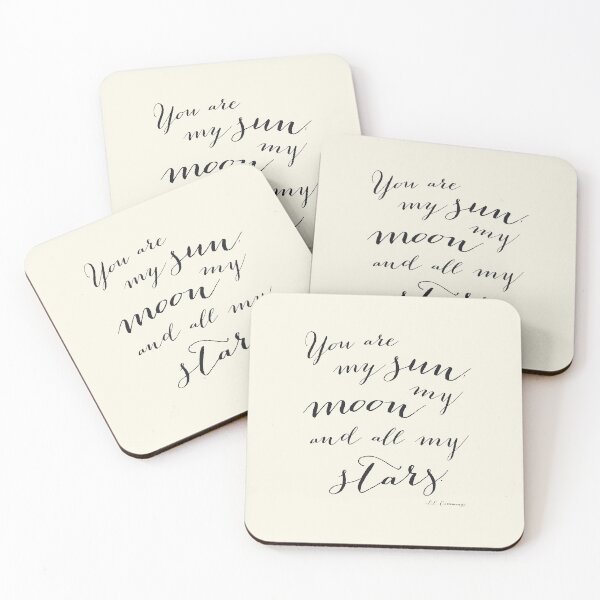 You are
my sun,
my
moon
You are
my sun,
my
moon
and all my
stars
You are
my sun,
my
moon
and all my
stars
You are
my sun,
my
moon
and all my
stars.
E.E. Cummings